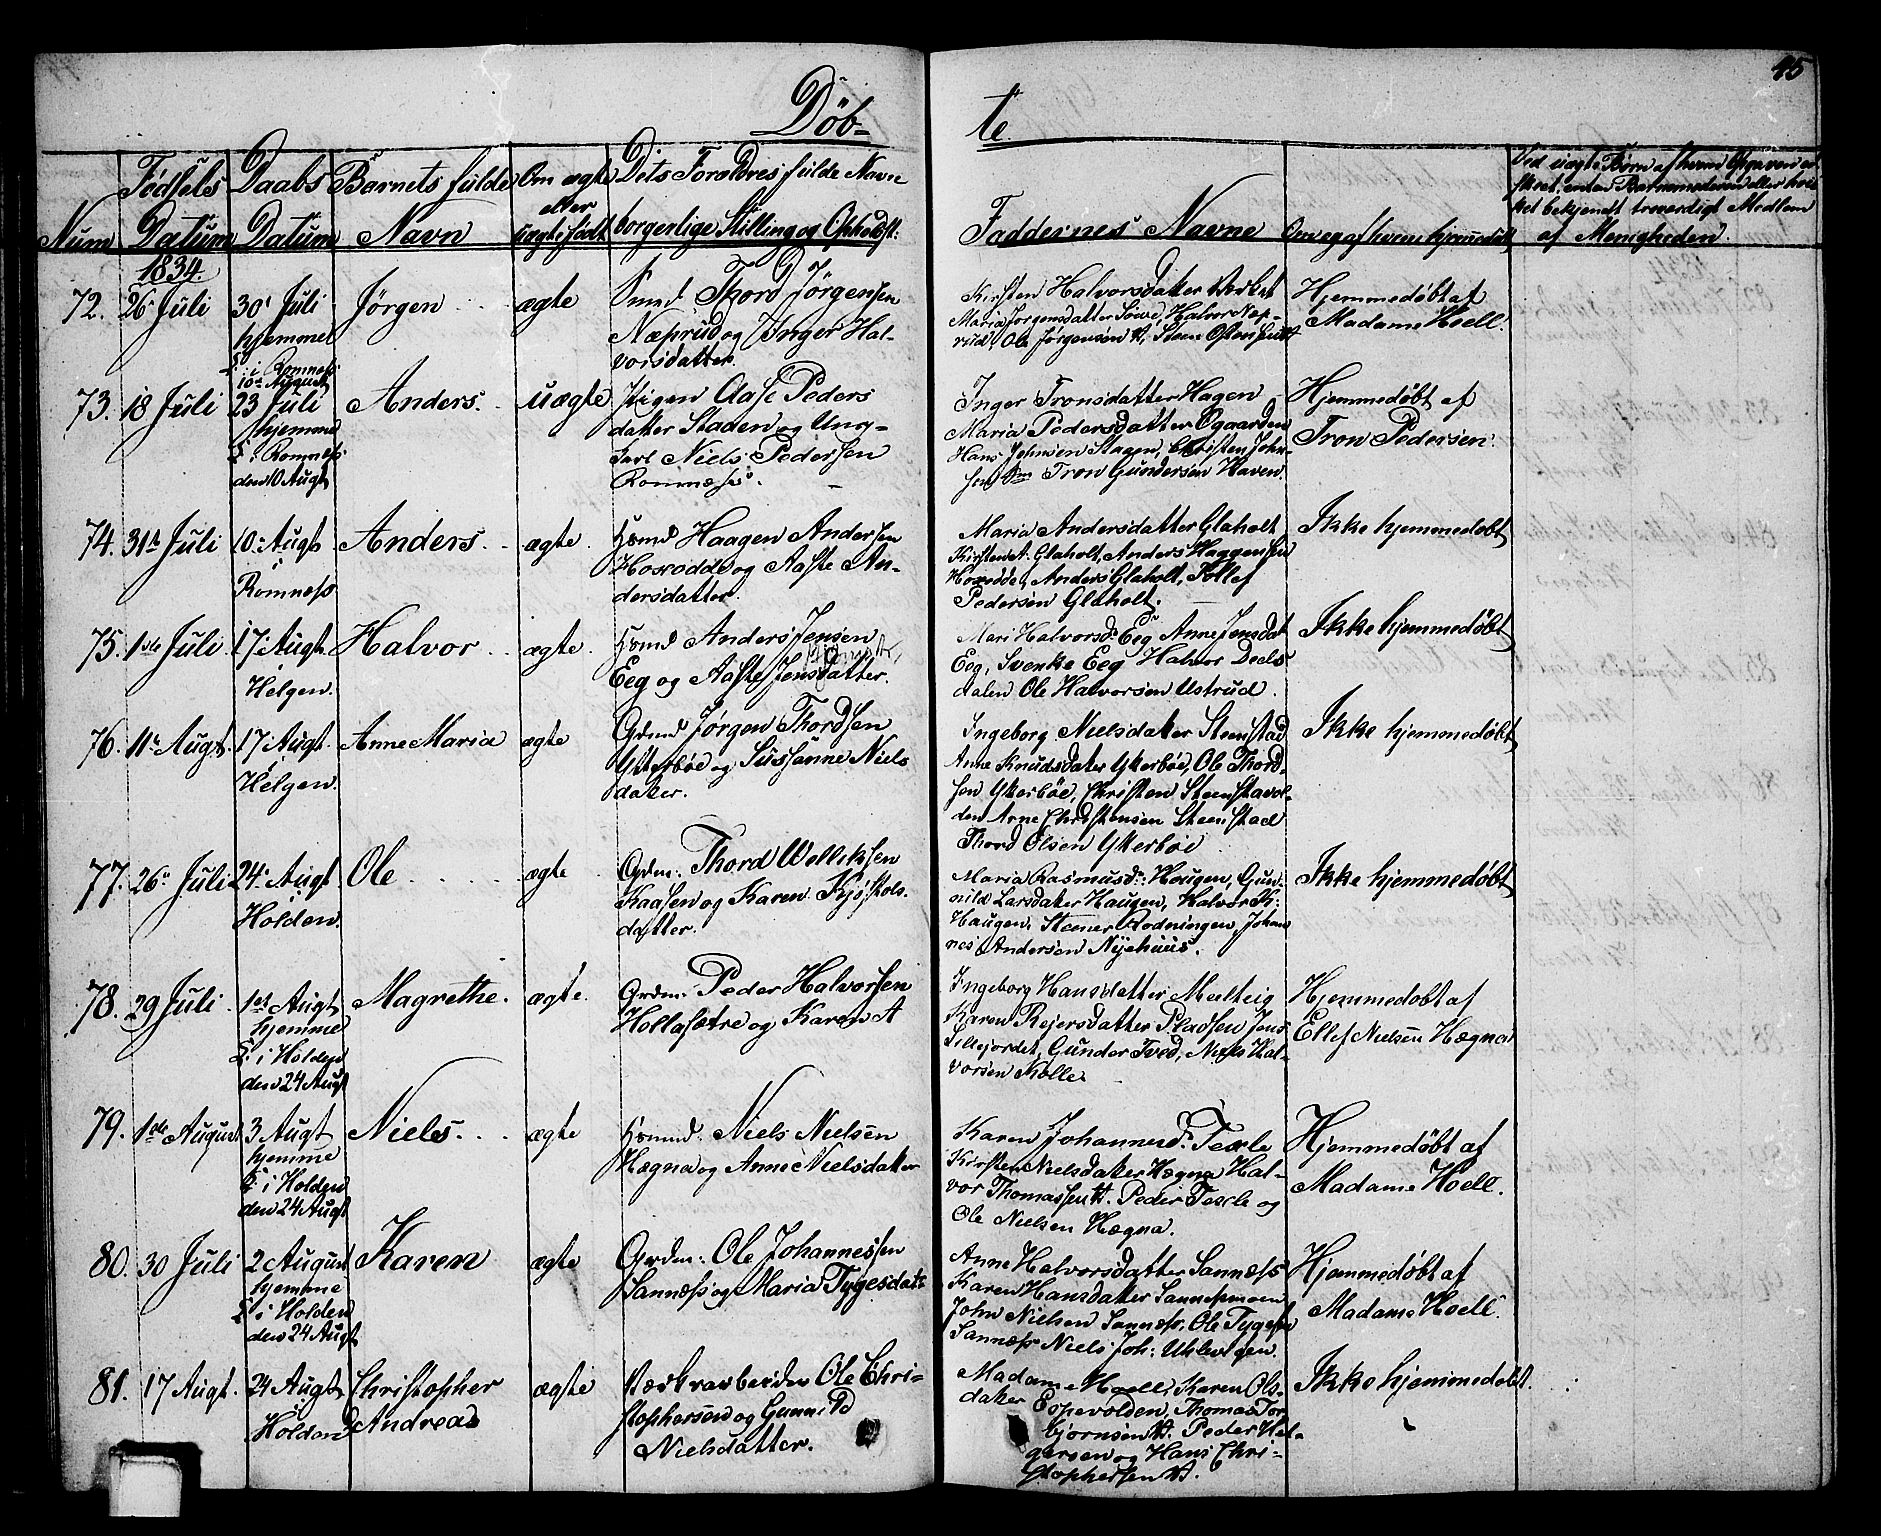 45
Döb-
te.
Num
Fødsels Datum
Daabs Datum
Barnets fulde Navn
Om ægte eller uægte født
Dets Forældres fulde Navn borgerlige Stilling og Opholdst:
Faddernes Navne
Om og af hvem hjemmedøbt
Ved uægte Børn af hvem Opgaven er
skeet, enten Barnemoderen eller hvil
ket bekjendt troværdigt Medlem
af Menigheden.
1834.
72. 26 Juli
30 Juli
hjemme
i Romness
10de August
Jørgen
ægte
Smed Thord Jørgensen
Næprud og Inger Hal-
vorsdatter.
Kirsten Halvorsdatter Verket
Maria Jørgensdatter Søve, Halvor Næp-
rud, Ole Jørgensen
Hjemmedøbt af
Madame Hoell.
73. 18 Juli
23 Juli
hjemme
i Romness
den 10 Augt
Anders.
uægte
Pigen Aase Peders
datter Staden og Ung-
karl Niels Pedersen
Romnæss.
Inger Tronsdatter Hagen
Maria Pedersdatter Ogaarden
Hans Johnsen Stagen, Christen John-
sen Tron Gundersen Haven.
Hjemmedøbt af
Tron Pedersen.
74. 31te Juli
10. Augt
Romness
Anders.
ægte.
Hsmd Haagen Andersen
Hoxodde og Aaste An-
dersdatter.
Maria Andersdatter Glaholt
Kirsten A. Glaholt, Anders Haagensen
Hoxodde, Anders Glaholt, Tollef
Pedersen Glaholt.
Ikke hjemmedøbt
75. 1ste Juli
17. Augt.
i
Helgen.
Halvor
ægte.
Hsmd Anders Jensen
Eeg og Aaste Jensdatter.
Mari Halvorsd. Eeg Anne Jensdat
Eeg, Svenke Eeg Halvor Deels
dalen Ole Halvorsen Ustrud.
Ikke hjemmedøbt
76. 11te Augt.
17. Augt.
i
Helgen.
Anne Maria
ægte
Grmd Jørgen Thordsen
Ytterbøe og Sussanne Niels
datter.
Ingeborg Nielsdatter Steenstad
Anne Knudsdatter Ytterbøe, Ole Thord-
sen Ytterbøe, Christen Steenstavol-
den Arne Christensen Steenstad
Thord Olsen Ytterbøe
Ikke hjemmedøbt
77. 26. Juli
24. Augt
i
Holden.
Ole
ægte
Grdm: Thord Wetliksen
Kaasen og Karen Kjøstols-
datter.
Maria Rasmusd: Hougen, Gun-
nild Larsdatter Haugen, Halvor K:
Haugen, Steener Rodningen, Johan
nes Andersen Nyehuus.
Ikke hjemmedøbt
78. 29 Juli
1ste Augt
hjemme
i Holden
den 24 Augt
Magrethe.
ægte.
Grdm: Peder Halvorsen
Hollasætre og Karen A
Ingeborg Hansdatter Melteig
Karen Rejersdatter Pladsen, Jens
Lillejordet, Gunder Tved, Niels Hal-
vorsen Kolle.
Hjemmedobt af
Ellef Nielsen Hægna
79. 1ste August
3 Augt
hjemme
i Holden
den 24 Augt
Niels.
ægte
Hsmd: Niels Nielsen
Hægna og Anne Nielsdatter
Karen Johannesd: Texle
Kirsten Nielsdatter Hægna Hal-
vor Thomassen H. Peder Texle og
Ole Nielsen Hægna.
Hjemmedøbt af
Madame Hoell.
80. 30 Juli
2 August
hjemme
i Holden
den 24 Augt
Karen
ægte
Grdm: Ole Johannessen
Sannæss og Maria Tygesdatr
Anne Halvorsdatter Sannæss
Karen Hansdatter Sannesmoen
John Nielsen Sannæss, Ole Tygesen
Sannæss Niels Joh: Uhlevigen.
Hjemmedøbt af
Madame Hoell.
81. 17 Augt.
24 Augt
i
Holden
Christopher
Andreas
ægte
Værksarbeider Ole Chri-
stophersen og Gunnild
Nielsdatter.
Madame Hoell, Karen Ols-
datter Eopevolden, Thomas Tor
bjørnsen H. Peder Hel-
gersen og Hans Chri-
stophersen H.
Ikke hjemmedobt.